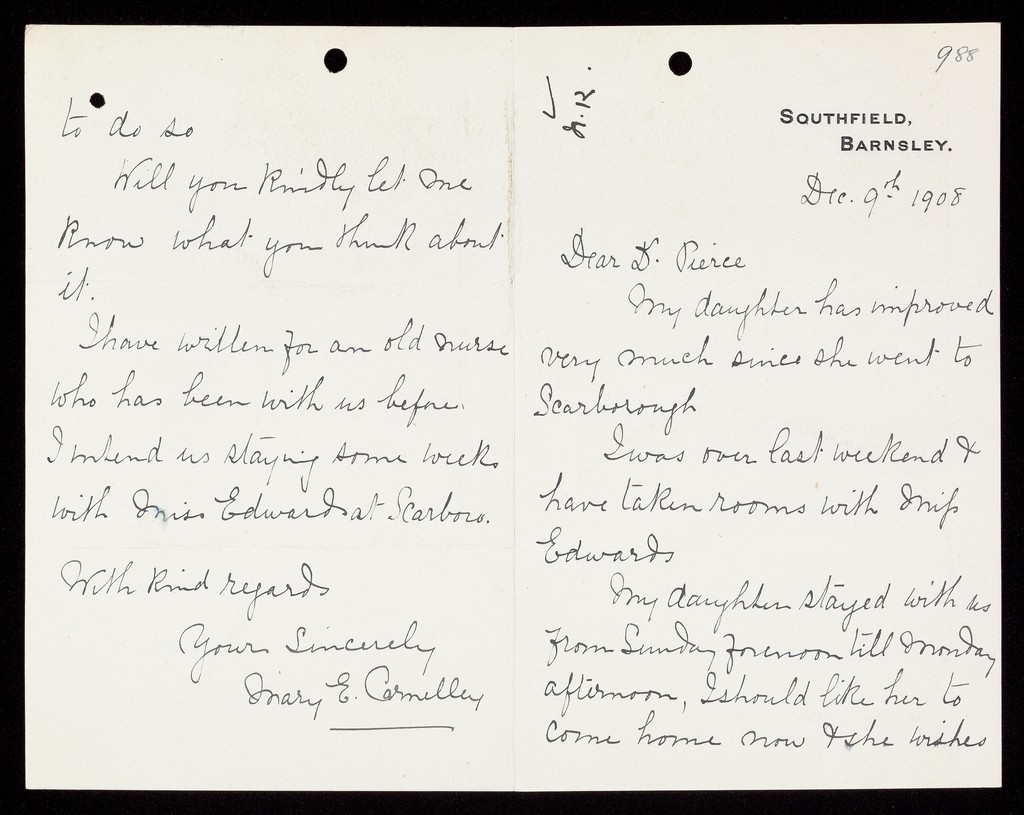 988
N.R.
SOUTHFIELD,
BARNSLEY.
Dec. 9th 1908
Dear Dr. Pierce
My daughter has improved
very much since she went to
Scarborough
I was over last weekend &
have taken rooms with Miss
Edwards
My daughter stayed with us
from Sunday forenoon till Monday
afternoon, I should like her to
come home now & she wishes
to do so
Will you kindly let me
know what you think about
it.
I have written for an old nurse
who has been with us before.
I intend us staying some weeks
with Miss Edwards at Scarboro.
With kind regards
Yours Sincerely
Mary E. Carnelley